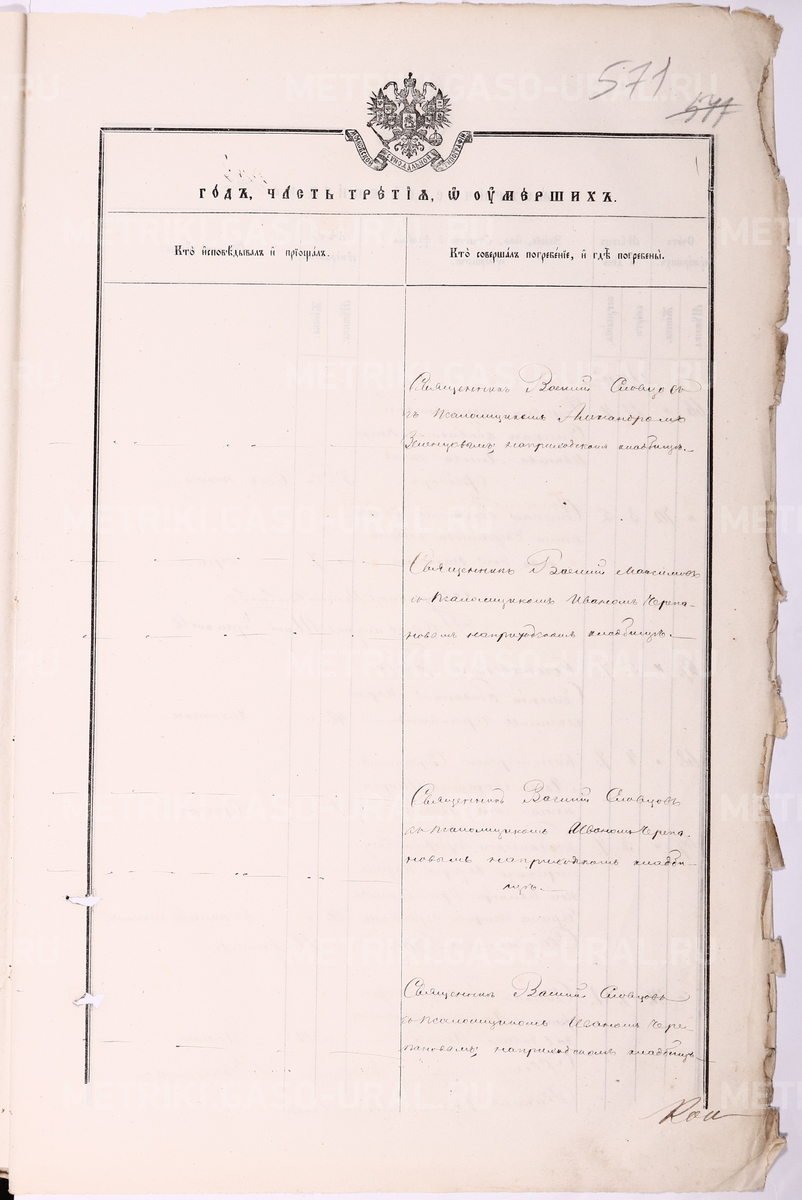 571
577
МОСКОВСКОЙ СѴНОДАЛЬНОЙ ТИПОГРАФІИ
ГО́ДЪ, ЧА́СТЬ ТРЕ́ТІѦ, Ѡ҆ ОУ҆МЕ́РШИХЪ.
Кто̀ и҆сповѣ́дывалъ и҆ прїѡбща́лъ.
Кто̀ соверша́лъ погребе́нїе, и҆ гдѣ̀ погребены̀.
Священникъ Василій Словцовъ
съ псаломщикомъ Александромъ
на приходскомъ кладбищѣ.
Священникъ Василій Максимовъ
съ псаломщикомъ Иваномъ Черепа-
новымъ на приходскомъ кладбищѣ.
Священникъ Василій Словцовъ
съ псаломщикомъ Иваномъ Черепа-
новымъ на приходскомъ кладби-
щѣ.
Священникъ Василій Словцовъ
съ псаломщикомъ Иваномъ Чере
пановымъ на приходскомъ кладбищѣ
METRIKI.GASO-URAL.RU